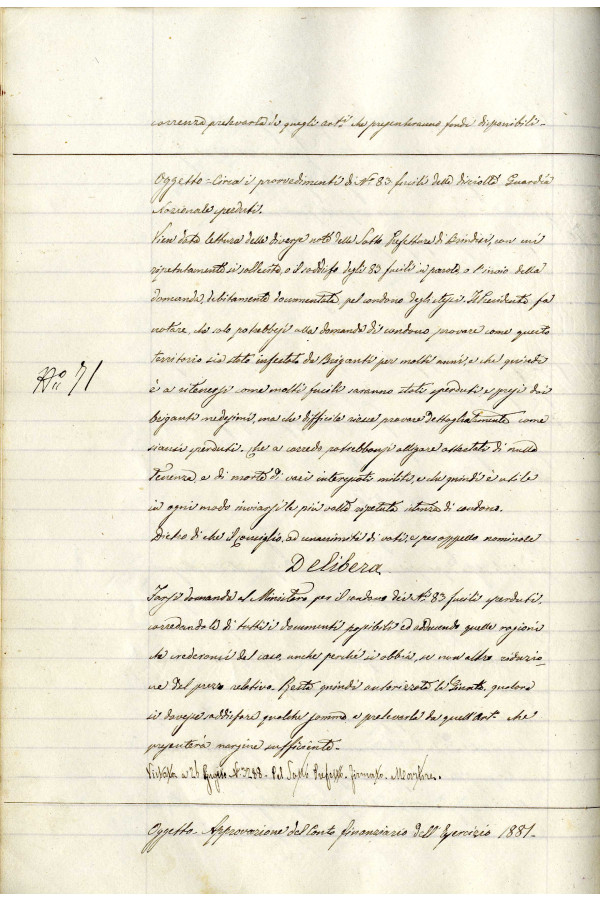 correnza prelevarla da quegli art.li che presenteranno fondi disponibili.-
Oggetto - Circa i provvedimenti di N.° 83 fucili della disciolta Guardia
Nazionale sperduti.
Vien data lettura delle diverse note della Sotto Prefettura di Brindisi, con cui
ripetutamente si sollecita, o il soddisfo degli 83 fucili in parola o l'invio della
domanda, debitamente documentata, pel condono degli stessi. Il Presidente fa
notare, che solo potrebbesi alla domanda di condono provare come questo
territorio sia stato infestato da Briganti per molti anni, e che quindi
N.° 71
è a ritenersi come molti fucili saranno stati sperduti e presi dai
briganti medesimi, ma che difficile riesce provare dettagliatamente come
siansi perduti. Che a corredo potrebbonsi alligare attestati di nulla
tenenza e di morte di vari interessati militi, e che quindi è utile
in ogni modo inviarsi la più volte ripetuta istanza di condono.
Dietro di che il Consiglio, ad unanimità di voti, e per appello nominale
Delibera
Farsi domanda al Ministero per il condono dei N.° 83 fucili sperduti,
corredandola di tutti i documenti possibili ed adducendo quelle ragioni
che crederonsi del caso, anche perché si abbia, se non altro riduzio-
ne del prezzo relativo. Resta quindi autorizzata la Giunta, qualora
si dovesse soddisfare qualche somma a prelevarla da quell'Art. che
presenterà margine sufficiente.-
Vistato a 26 Giugno N. 3288 - Pel Sotto Prefetto - firmato -
Oggetto - Approvazione del Conto finanziario dell'Esercizio 1881.-